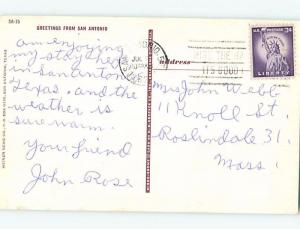 SA-15
GREETINGS FROM SAN ANTONIO
am enjoying
my stay here
in San Antonio
Texas. and the
weather is
sure warm.
Your friend
John Rose
JUL
Address
U.S. POSTAGE 3¢
LIBERTY
Mrs John Webb
11 Knoll St.
Roslindale 31.
Mass.